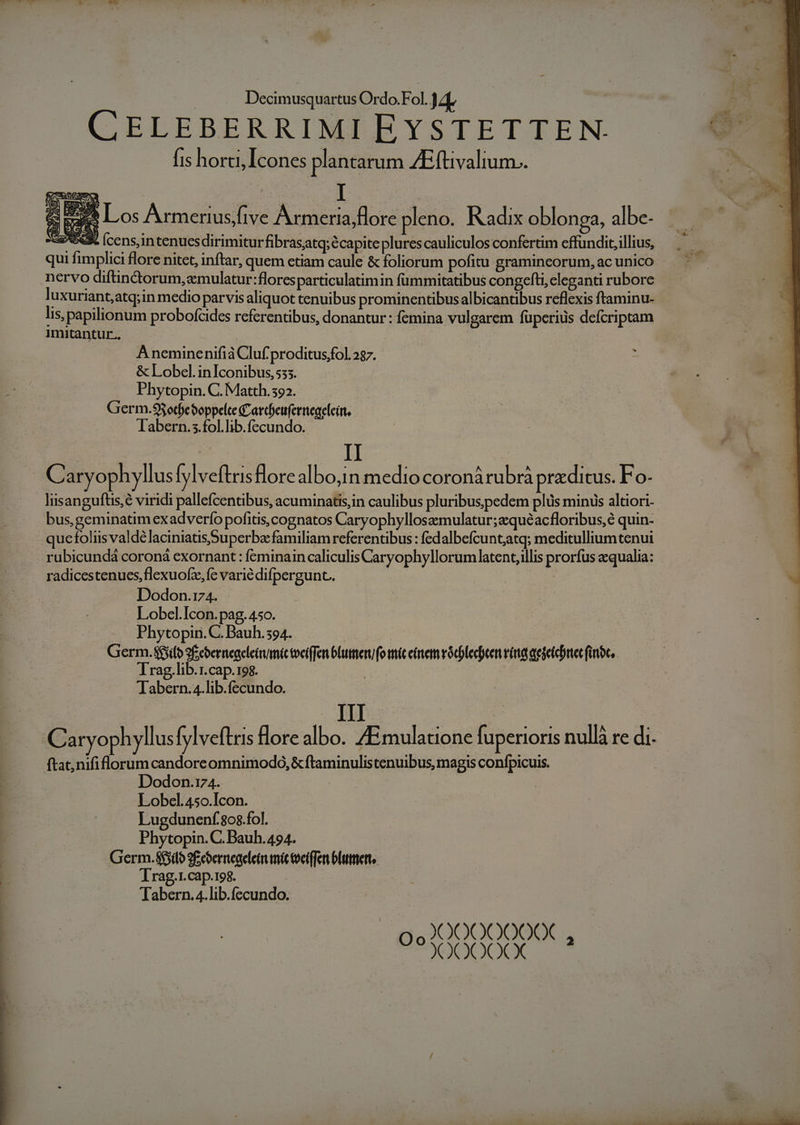 Decimusquartus Ordo. Fol. 14.
CELEBERRIMI EYSTETTEN-
ſis horti, Icones plantarum Æſtivalium.
I
FLos Armerius, ſive Armeria, flore pleno. Radix oblonga, albe-
ſcens, in tenues dirimitur fibras, atq; è capite plures cauliculos confertim effundit, illius,
qui ſimplici flore nitet, inſtar, quem etiam caule & foliorum poſitu gramineorum, ac unico
nervo diſtinctorum, æmulatur: flores particulatim in ſummitatibus congeſti, eleganti rubore
luxuriant, atq; in medio parvis aliquot tenuibus prominentibus albicantibus reflexis ſtaminu-
lis, papilionum proboſcides referentibus, donantur: ſemina vulgarem ſuperiùs deſcriptam
imitantur.
A nemine niſi à Cluſ. proditus, fol. 287.
& Lobel. in Iconibus, 535.
Phytopin. C. Matth. 392.
Germ. Rothe doppelte Cartheuſernegelein.
Tabern. 3. fol. lib. ſecundo.
II
Caryophyllus ſylveſtris flore albo, in medio coronâ rubrâ præditus. Fo-
liis anguſtis, è viridi palleſcentibus, acuminatis, in caulibus pluribus, pedem plùs minùs altiori-
bus, geminatim ex adverſo poſitis, cognatos Caryophyllos æmulatur; æquè ac floribus, è quin-
que foliis valdè laciniatis, Superbæ familiam referentibus: ſed albeſcunt, atq; meditullium tenui
rubicundâ coronâ exornant: ſemina in caliculis Caryophyllorum latent, illis prorſus æqualia:
radices tenues, flexuoſæ, ſe variè diſpergunt.
Dodon. 174.
Lobel. Icon. pag. 450.
Phytopin. C. Bauh. 394.
Germ. Wild Federnegelein/ mit weiſſen blumen/ ſo mit einem röthlechten ring gezeichnet ſindt.
Trag. lib. 1. cap. 198.
Tabern. 4. lib. ſecundo.
III
Caryophyllus ſylveſtris flore albo. Æmulatione ſuperioris nullâ re di-
ſtat, niſi florum candore omnimodò, & ſtaminulis tenuibus, magis conſpicuis.
Dodon. 174.
Lobel. 450. Icon.
Lugdunenſ. 808. fol.
Phytopin. C. Bauh. 494.
Germ. Wild Federnegelein mit weiſſen blumen.
Trag. 1. cap. 198.
Tabern. 4. lib. ſecundo.
Oo )()()()()()()()( 2
)()()()()(